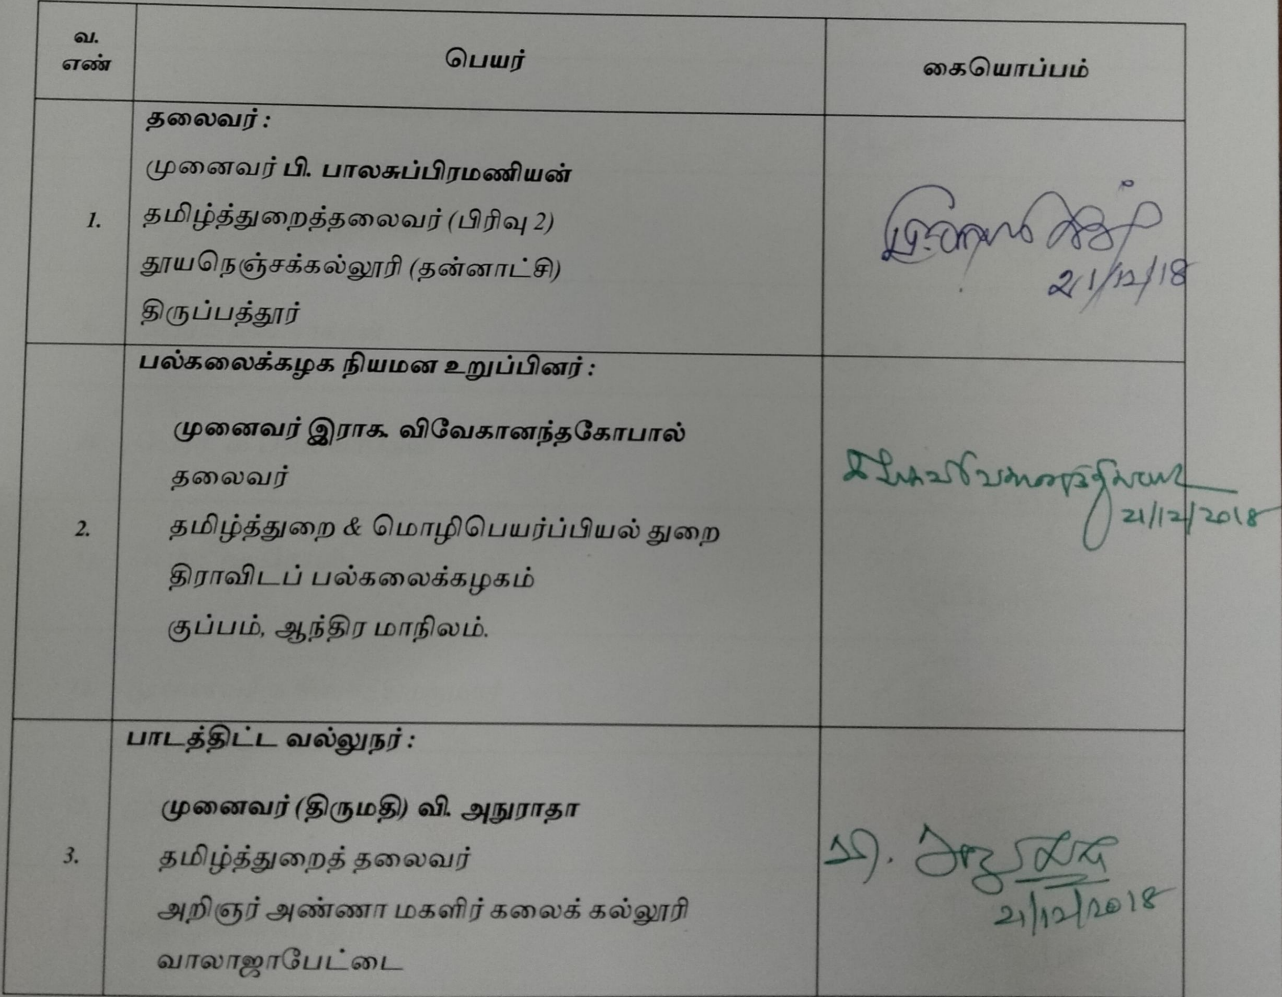 வ. எண்
பெயர்
கையொப்பம்
1.
தலைவர் :
முனைவர் பி. பாலசுப்பிரமணியன்
தமிழ்த்துறைத்தலைவர் (பிரிவு 2)
தூயநெஞ்சக்கல்லூரி (தன்னாட்சி)
திருப்பத்தூர்
21/12/18
2.
பல்கலைக்கழக நியமன உறுப்பினர் :
முனைவர் இராக. விவேகானந்தகோபால்
தலைவர்
தமிழ்த்துறை & மொழிபெயர்ப்பியல் துறை
திராவிடப் பல்கலைக்கழகம்
குப்பம், ஆந்திர மாநிலம்.
21/12/2018
3.
பாடத்திட்ட வல்லுநர் :
முனைவர் (திருமதி) வி. அநுராதா
தமிழ்த்துறைத் தலைவர்
அறிஞர் அண்ணா மகளிர் கலைக் கல்லூரி
வாலாஜாபேட்டை
21/12/2018